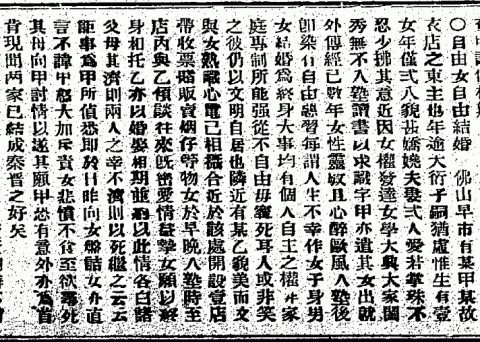 ○自由女自由結婚　佛山早市有某甲某故
衣店之東主也年逾大衍子嗣猶虛惟生有壹
女年僅弍八貌甚嬌嬈夫妻弍人愛若掌珠不
忍少拂其意近因女權發達女學大興大家閨
秀無不入塾讀書以求識字甲亦遣其女出就
外傅經已數年女性靈敏且心醉歐風入塾後
即染有自由惡習每謂人生不幸作女子身男
女結婚爲終身大事均有個人自主之權非家
庭專制所能强從不自由毋寧死耳人或非笑
之彼仍以文明自居也隣近有某乙貌美而文
與女熟識心電已相合近於該處開設壹店
帶收票賭販賣烟仔等物女於早晚入塾時至
店內與乙傾談往來旣密愛情益摯女願以終
身相托乙亦以婚娶相期並以此情各白諸
父母其濟則兩人之幸不濟則以死繼之云云
詎事爲甲所偵悉即於日昨向女盤詰女亦直
言不諱甲怒大加斥責女悲憤不食至欲尋死
其母向甲討情以遂其願甲恐有意外亦爲首
肯現聞兩家已結成秦晋之好矣